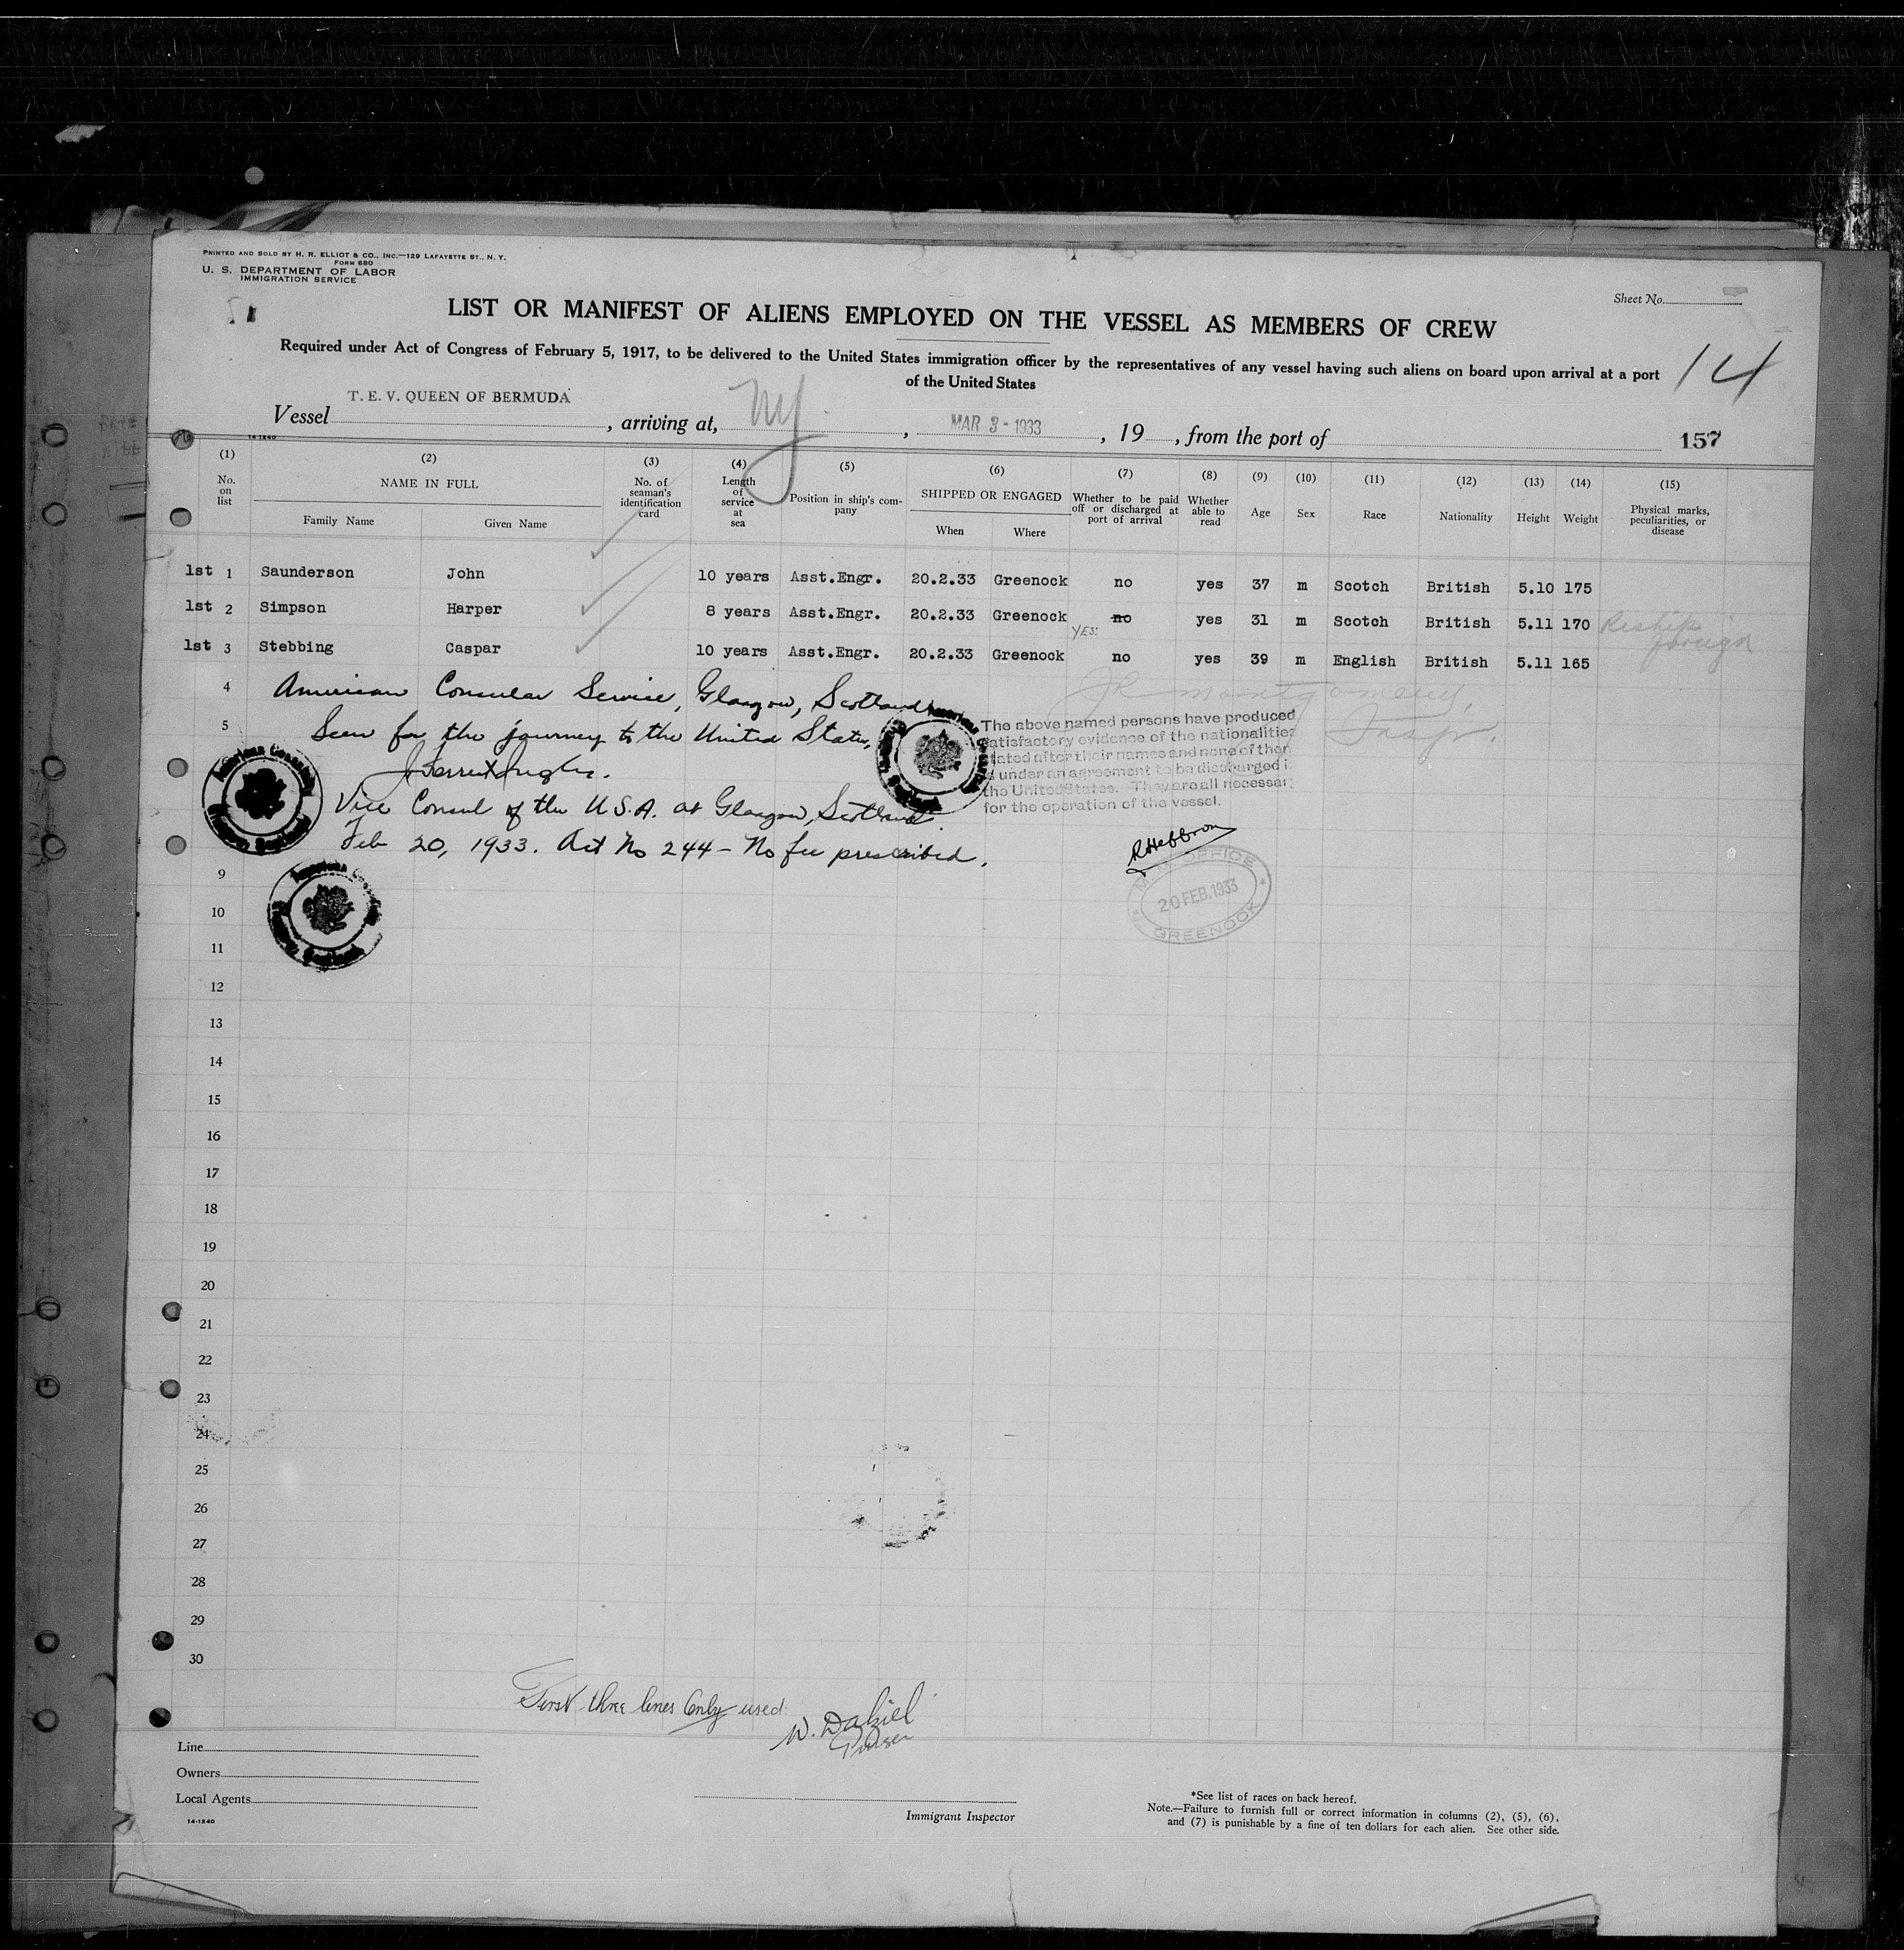 PRINTED AND SOLD BY H. R. ELLIOT & CO., INC.—129 LAFAYETTE ST., N. Y.
FORM 680
U. S. DEPARTMENT OF LABOR
IMMIGRATION SERVICE
Sheet No.
LIST OR MANIFEST OF ALIENS EMPLOYED ON THE VESSEL AS MEMBERS OF CREW
Required under Act of Congress of February 5, 1917, to be delivered to the United States immigration officer by the representatives of any vessel having such aliens on board upon arrival at a port
of the United States
14
Vessel T. E. V. QUEEN OF BERMUDA, arriving at, NY, MAR 3 - 1933, 19, from the port of
157
14-1240
(1) (2) (3) (4) (5) (6) (7) (8) (9) (10) (11) (12) (13) (14) (15)
No. on list NAME IN FULL No. of seaman's identification card Length of service at sea Position in ship's company SHIPPED OR ENGAGED Whether to be paid off or discharged at port of arrival Whether able to read Age Sex Race Nationality Height Weight Physical marks, peculiarities, or disease
Family Name Given Name When Where
1st 1 Saunderson John 10 years Asst.Engr. 20.2.33 Greenock no yes 37 m Scotch British 5.10 175
1st 2 Simpson Harper 8 years Asst.Engr. 20.2.33 Greenock no YES. yes 31 m Scotch British 5.11 170 Reship foreign
1st 3 Stebbing Caspar 10 years Asst.Engr. 20.2.33 Greenock no yes 39 m English British 5.11 165
4 American Consular Service, Glasgow, Scotland
JR Montgomery,
Insp.
5 Seen for the journey to the United States,
Vice Consul of the U.S.A. at Glasgow, Scotland.
Feb 20, 1933. Act No 244 - No fee prescribed.
The above named persons have produced
satisfactory evidence of the nationalities
stated after their names and none of them
is under an agreement to be discharged i
the United States. They are all necessary
for the operation of the vessel.
RHebbron
M. M. OFFICE
20 FEB. 1933
GREENOCK
9
10
11
12
13
14
15
16
17
18
19
20
21
22
23
24
25
26
27
28
29
30
First three lines only used.
W. Dalziel
Purser
Line
Owners
Local Agents
14-1240
Immigrant Inspector
*See list of races on back hereof.
Note.—Failure to furnish full or correct information in columns (2), (5), (6),
and (7) is punishable by a fine of ten dollars for each alien. See other side.